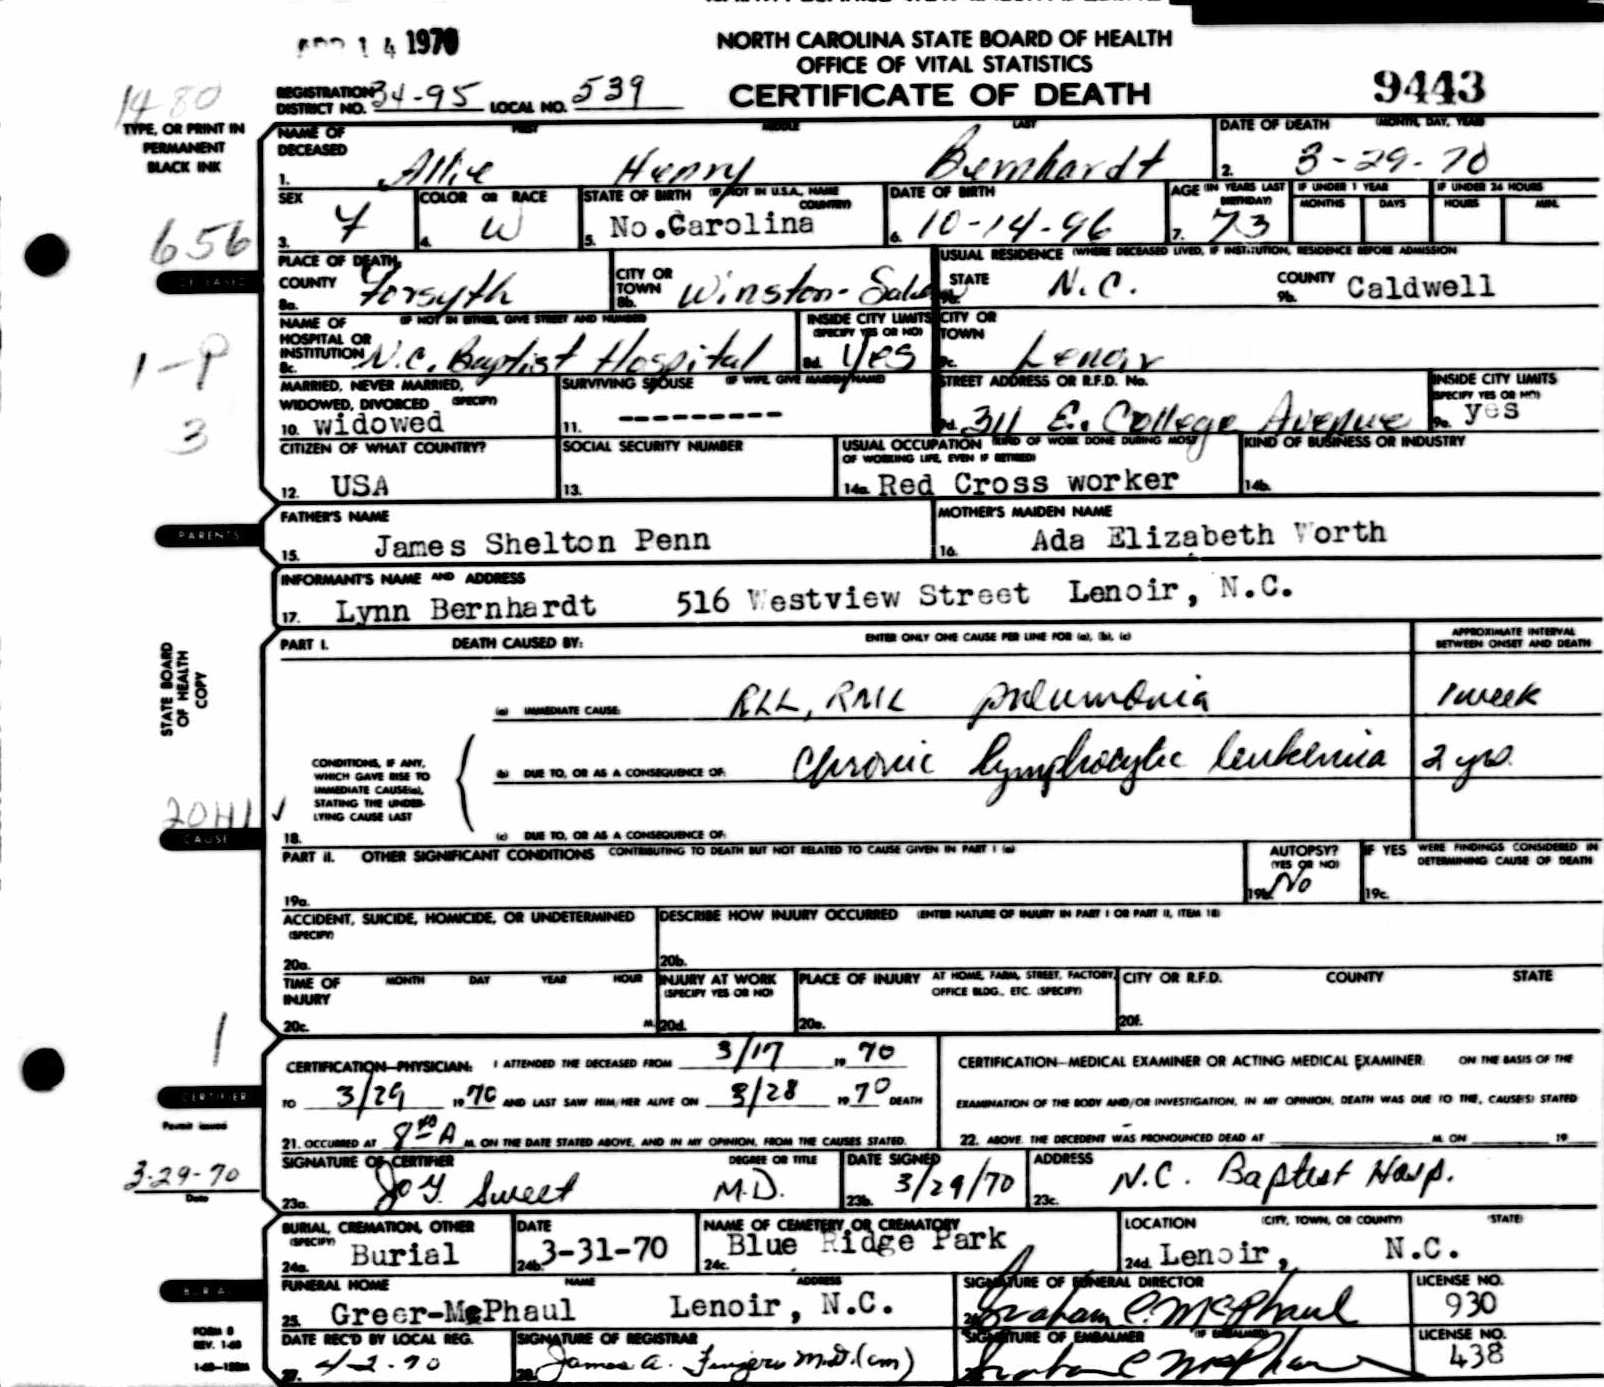 14 1970
NORTH CAROLINA STATE BOARD OF HEALTH
OFFICE OF VITAL STATISTICS
CERTIFICATE OF DEATH
9443
1480
REGISTRATION DISTRICT NO. 34-95 LOCAL NO. 539
TYPE, OR PRINT IN
PERMANENT
BLACK INK
NAME OF DECEASED FIRST MIDDLE LAST DATE OF DEATH (MONTH, DAY, YEAR)
1. Allie Henry Bernhardt 2. 3-29-70
SEX COLOR OR RACE STATE OF BIRTH (IF NOT IN U.S.A., NAME COUNTRY) DATE OF BIRTH AGE (IN YEARS LAST BIRTHDAY) IF UNDER 1 YEAR IF UNDER 24 HOURS
MONTHS DAYS HOURS MIN.
3. F 4. W 5. No.Carolina 6. 10-14-96 7. 73
656
PLACE OF DEATH USUAL RESIDENCE (WHERE DECEASED LIVED, IF INSTITUTION, RESIDENCE BEFORE ADMISSION
DECEASED
COUNTY 8a. Forsyth CITY OR TOWN 8b. Winston-Salem STATE 9a. N.C. COUNTY 9b. Caldwell
NAME OF HOSPITAL OR INSTITUTION (IF NOT IN EITHER, GIVE STREET AND NUMBER) INSIDE CITY LIMITS (SPECIFY YES OR NO) CITY OR TOWN
8c. N.C. Baptist Hospital 8d. Yes 9c. Lenoir
1-P
3
MARRIED, NEVER MARRIED, WIDOWED, DIVORCED (SPECIFY) SURVIVING SPOUSE (IF WIFE, GIVE MAIDEN NAME) STREET ADDRESS OR R.F.D. No. INSIDE CITY LIMITS (SPECIFY YES OR NO)
10. widowed 11. --------- 9d. 311 E. College Avenue 9e. yes
CITIZEN OF WHAT COUNTRY? SOCIAL SECURITY NUMBER USUAL OCCUPATION (KIND OF WORK DONE DURING MOST OF WORKING LIFE, EVEN IF RETIRED) KIND OF BUSINESS OR INDUSTRY
12. USA 13. 14a. Red Cross worker 14b.
FATHER'S NAME MOTHER'S MAIDEN NAME
PARENTS
15. James Shelton Penn 16. Ada Elizabeth Worth
INFORMANT'S NAME AND ADDRESS
17. Lynn Bernhardt 516 Westview Street Lenoir, N.C.
STATE BOARD
OF HEALTH
COPY
PART I. DEATH CAUSED BY: ENTER ONLY ONE CAUSE PER LINE FOR (a), (b), (c) APPROXIMATE INTERVAL BETWEEN ONSET AND DEATH
(a) IMMEDIATE CAUSE: RLL, RML pneumonia 1 week
CONDITIONS, IF ANY,
WHICH GAVE RISE TO
IMMEDIATE CAUSE(a),
STATING THE UNDER-
LYING CAUSE LAST
(b) DUE TO, OR AS A CONSEQUENCE OF: Chronic lymphocytic leukemia 2 yrs.
2041
CAUSE
18. (c) DUE TO, OR AS A CONSEQUENCE OF:
PART II. OTHER SIGNIFICANT CONDITIONS CONTRIBUTING TO DEATH BUT NOT RELATED TO CAUSE GIVEN IN PART I (a) AUTOPSY? (YES OR NO) IF YES WERE FINDINGS CONSIDERED IN DETERMINING CAUSE OF DEATH
19a. 19b. No 19c.
ACCIDENT, SUICIDE, HOMICIDE, OR UNDETERMINED (SPECIFY) DESCRIBE HOW INJURY OCCURRED (ENTER NATURE OF INJURY IN PART I OR PART II, ITEM 18)
20a. 20b.
TIME OF INJURY MONTH DAY YEAR HOUR INJURY AT WORK (SPECIFY YES OR NO) PLACE OF INJURY AT HOME, FARM, STREET, FACTORY, OFFICE BLDG., ETC. (SPECIFY) CITY OR R.F.D. COUNTY STATE
20c. M. 20d. 20e. 20f.
1
CERTIFICATION—PHYSICIAN: I ATTENDED THE DECEASED FROM 3/17 19 70
TO 3/29 19 70 AND LAST SAW HIM/HER ALIVE ON 3/28 19 70 DEATH
21. OCCURRED AT 8:00 A M. ON THE DATE STATED ABOVE, AND IN MY OPINION, FROM THE CAUSES STATED.
CERTIFICATION—MEDICAL EXAMINER OR ACTING MEDICAL EXAMINER: ON THE BASIS OF THE
EXAMINATION OF THE BODY AND/OR INVESTIGATION, IN MY OPINION, DEATH WAS DUE TO THE, CAUSE(S) STATED
22. ABOVE. THE DECEDENT WAS PRONOUNCED DEAD AT M. ON 19
CERTIFIER
Permit issued
3-29-70
Date
SIGNATURE OF CERTIFIER DEGREE OR TITLE DATE SIGNED ADDRESS
23a. Jo Y. Sweet M.D. 23b. 3/29/70 23c. N.C. Baptist Hosp.
BURIAL, CREMATION, OTHER (SPECIFY) DATE NAME OF CEMETERY OR CREMATORY LOCATION (CITY, TOWN, OR COUNTY) (STATE)
24a. Burial 24b. 3-31-70 24c. Blue Ridge Park 24d. Lenoir, N.C.
BURIAL
FUNERAL HOME NAME ADDRESS SIGNATURE OF FUNERAL DIRECTOR LICENSE NO.
25. Greer-McPhaul Lenoir, N.C. 26. Graham C. McPhaul 930
FORM 8
REV. 1-68
DATE REC'D BY LOCAL REG. SIGNATURE OF REGISTRAR SIGNATURE OF EMBALMER (IF EMBALMED) LICENSE NO.
27. 4-2-70 28. James A. Finger M.D. (cm) Graham C McPhaul 438